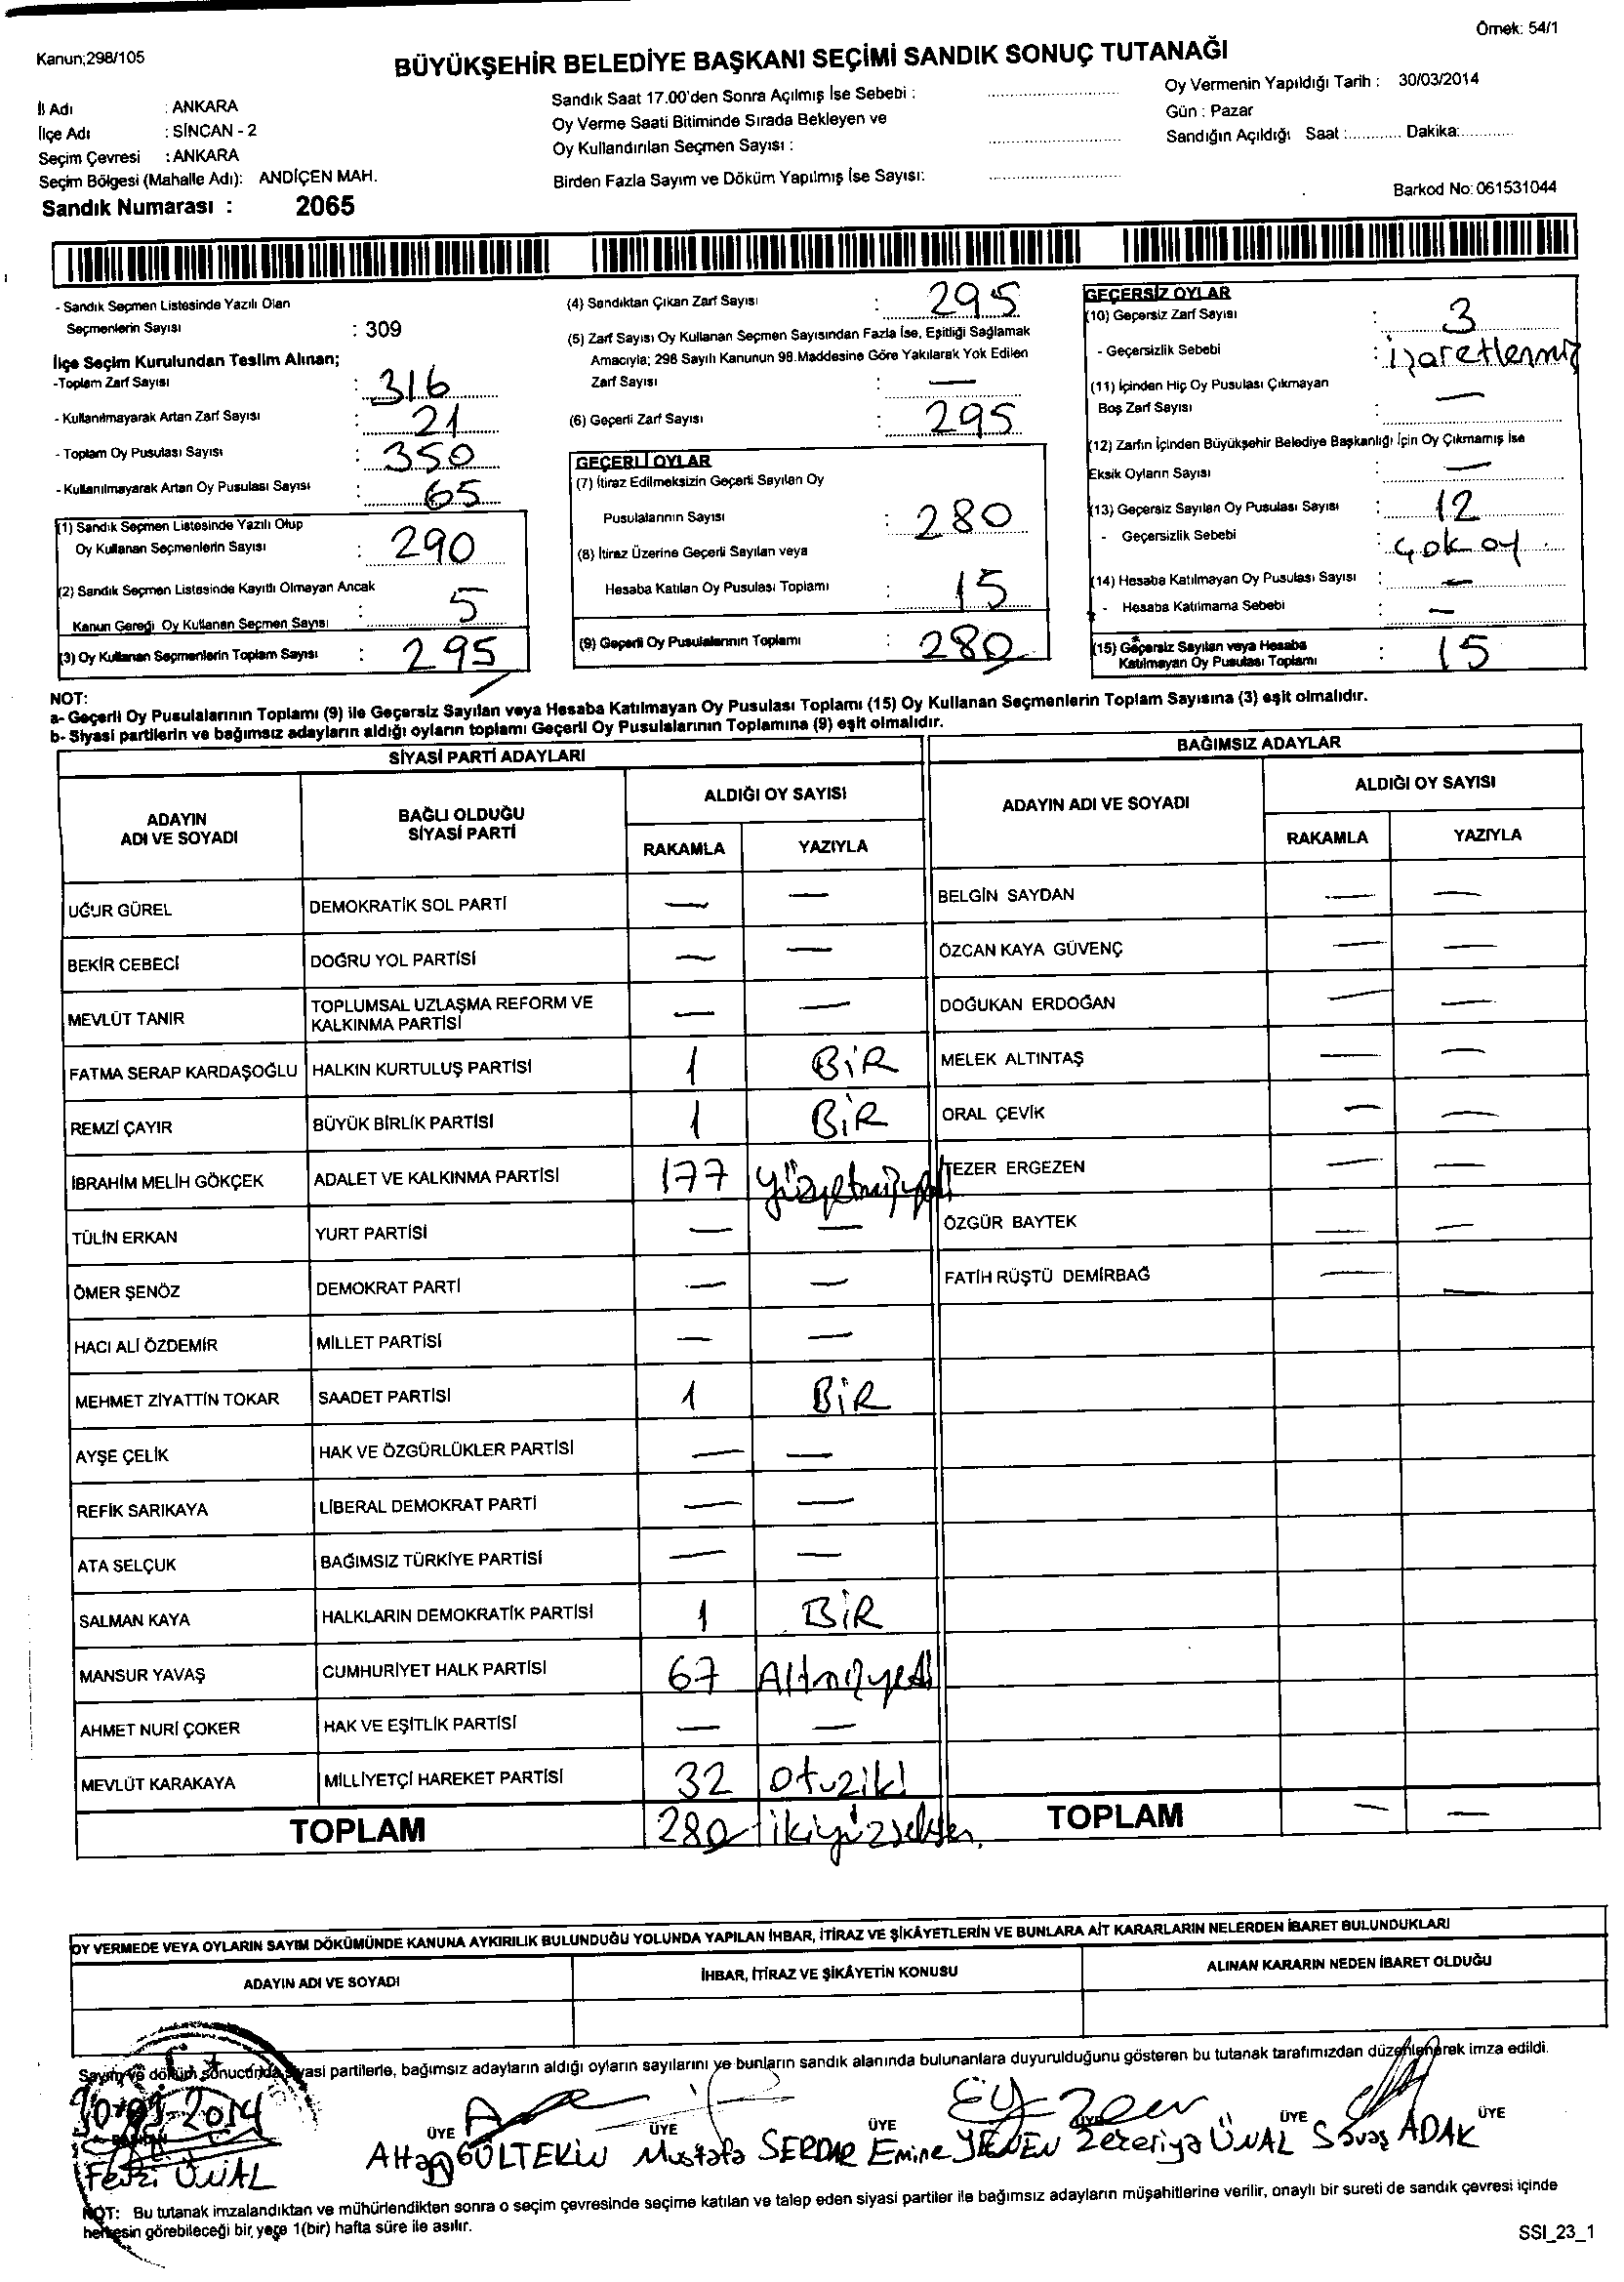 Örnek: 54/1
Kanun;298/105
BÜYÜKŞEHİR BELEDİYE BAŞKANI SEÇİMİ SANDIK SONUÇ TUTANAĞI
İl Adı : ANKARA
İlçe Adı : SİNCAN - 2
Seçim Çevresi : ANKARA
Seçim Bölgesi (Mahalle Adı): ANDİÇEN MAH.
Sandık Numarası : 2065
Sandık Saat 17.00'den Sonra Açılmış İse Sebebi :
Oy Verme Saati Bitiminde Sırada Bekleyen ve
Oy Kullandırılan Seçmen Sayısı :
Birden Fazla Sayım ve Döküm Yapılmış İse Sayısı:
Oy Vermenin Yapıldığı Tarih : 30/03/2014
Gün : Pazar
Sandığın Açıldığı Saat :............ Dakika:............
Barkod No: 061531044
- Sandık Seçmen Listesinde Yazılı Olan
Seçmenlerin Sayısı : 309
İlçe Seçim Kurulundan Teslim Alınan;
-Toplam Zarf Sayısı : 316
- Kullanılmayarak Artan Zarf Sayısı : 21
- Toplam Oy Pusulası Sayısı : 350
- Kullanılmayarak Artan Oy Pusulası Sayısı : 65
(1) Sandık Seçmen Listesinde Yazılı Olup
Oy Kullanan Seçmenlerin Sayısı : 290
(2) Sandık Seçmen Listesinde Kayıtlı Olmayan Ancak
Kanun Gereği Oy Kullanan Seçmen Sayısı : 5
(3) Oy Kullanan Seçmenlerin Toplam Sayısı : 295
(4) Sandıktan Çıkan Zarf Sayısı : 295
(5) Zarf Sayısı Oy Kullanan Seçmen Sayısından Fazla İse, Eşitliği Sağlamak
Amacıyla; 298 Sayılı Kanunun 98.Maddesine Göre Yakılarak Yok Edilen
Zarf Sayısı : —
(6) Geçerli Zarf Sayısı : 295
GEÇERLİ OYLAR
(7) İtiraz Edilmeksizin Geçerli Sayılan Oy
Pusulalarının Sayısı : 280
(8) İtiraz Üzerine Geçerli Sayılan veya
Hesaba Katılan Oy Pusulası Toplamı : 15
(9) Geçerli Oy Pusulalarının Toplamı : 280
GEÇERSİZ OYLAR
(10) Geçersiz Zarf Sayısı : 3
- Geçersizlik Sebebi : işaretlenmiş
(11) İçinden Hiç Oy Pusulası Çıkmayan
Boş Zarf Sayısı : —
(12) Zarfın İçinden Büyükşehir Belediye Başkanlığı İçin Oy Çıkmamış İse
Eksik Oyların Sayısı : —
(13) Geçersiz Sayılan Oy Pusulası Sayısı : 12
- Geçersizlik Sebebi : çok oy
(14) Hesaba Katılmayan Oy Pusulası Sayısı : —
- Hesaba Katılmama Sebebi : —
(15) Geçersiz Sayılan veya Hesaba
Katılmayan Oy Pusulası Toplamı : 15
NOT:
a- Geçerli Oy Pusulalarının Toplamı (9) ile Geçersiz Sayılan veya Hesaba Katılmayan Oy Pusulası Toplamı (15) Oy Kullanan Seçmenlerin Toplam Sayısına (3) eşit olmalıdır.
b- Siyasi partilerin ve bağımsız adayların aldığı oyların toplamı Geçerli Oy Pusulalarının Toplamına (9) eşit olmalıdır.
SİYASİ PARTİ ADAYLARI
ADAYIN ADI VE SOYADI
BAĞLI OLDUĞU SİYASİ PARTİ
ALDIĞI OY SAYISI
RAKAMLA YAZIYLA
UĞUR GÜREL DEMOKRATİK SOL PARTİ — —
BEKİR CEBECİ DOĞRU YOL PARTİSİ — —
MEVLÜT TANIR TOPLUMSAL UZLAŞMA REFORM VE KALKINMA PARTİSİ — —
FATMA SERAP KARDAŞOĞLU HALKIN KURTULUŞ PARTİSİ 1 BİR
REMZİ ÇAYIR BÜYÜK BİRLİK PARTİSİ 1 BİR
İBRAHİM MELİH GÖKÇEK ADALET VE KALKINMA PARTİSİ 177 yüzyetmişyedi
TÜLİN ERKAN YURT PARTİSİ — —
ÖMER ŞENÖZ DEMOKRAT PARTİ — —
HACI ALİ ÖZDEMİR MİLLET PARTİSİ — —
MEHMET ZİYATTİN TOKAR SAADET PARTİSİ 1 BİR
AYŞE ÇELİK HAK VE ÖZGÜRLÜKLER PARTİSİ — —
REFİK SARIKAYA LİBERAL DEMOKRAT PARTİ — —
ATA SELÇUK BAĞIMSIZ TÜRKİYE PARTİSİ — —
SALMAN KAYA HALKLARIN DEMOKRATİK PARTİSİ 1 BİR
MANSUR YAVAŞ CUMHURİYET HALK PARTİSİ 67 Altmışyedi
AHMET NURİ ÇOKER HAK VE EŞİTLİK PARTİSİ — —
MEVLÜT KARAKAYA MİLLİYETÇİ HAREKET PARTİSİ 32 otuziki
TOPLAM 280 ikiyüzseksen.
BAĞIMSIZ ADAYLAR
ADAYIN ADI VE SOYADI
ALDIĞI OY SAYISI
RAKAMLA YAZIYLA
BELGİN SAYDAN — —
ÖZCAN KAYA GÜVENÇ — —
DOĞUKAN ERDOĞAN — —
MELEK ALTINTAŞ — —
ORAL ÇEVİK — —
TEZER ERGEZEN — —
ÖZGÜR BAYTEK — —
FATİH RÜŞTÜ DEMİRBAĞ — —
TOPLAM — —
OY VERMEDE VEYA OYLARIN SAYIM DÖKÜMÜNDE KANUNA AYKIRILIK BULUNDUĞU YOLUNDA YAPILAN İHBAR, İTİRAZ VE ŞİKÂYETLERİN VE BUNLARA AİT KARARLARIN NELERDEN İBARET BULUNDUKLARI
ADAYIN ADI VE SOYADI
İHBAR, İTİRAZ VE ŞİKÂYETİN KONUSU
ALINAN KARARIN NEDEN İBARET OLDUĞU
Sayım ve döküm sonucunda siyasi partilerle, bağımsız adayların aldığı oyların sayılarını ve bunların sandık alanında bulunanlara duyurulduğunu gösteren bu tutanak tarafımızdan düzenlenerek imza edildi.
30.03.2014
ÜYE ÜYE ÜYE ÜYE ÜYE
GÜLTEKİN Mustafa SERDAR Emine YENEN Zekeriya ÜNAL Savaş ADAK
Fevzi ÜNAL
NOT: Bu tutanak imzalandıktan ve mühürlendikten sonra o seçim çevresinde seçime katılan ve talep eden siyasi partiler ile bağımsız adayların müşahitlerine verilir, onaylı bir sureti de sandık çevresi içinde
herkesin görebileceği bir yere 1(bir) hafta süre ile asılır.
SSI_23_1